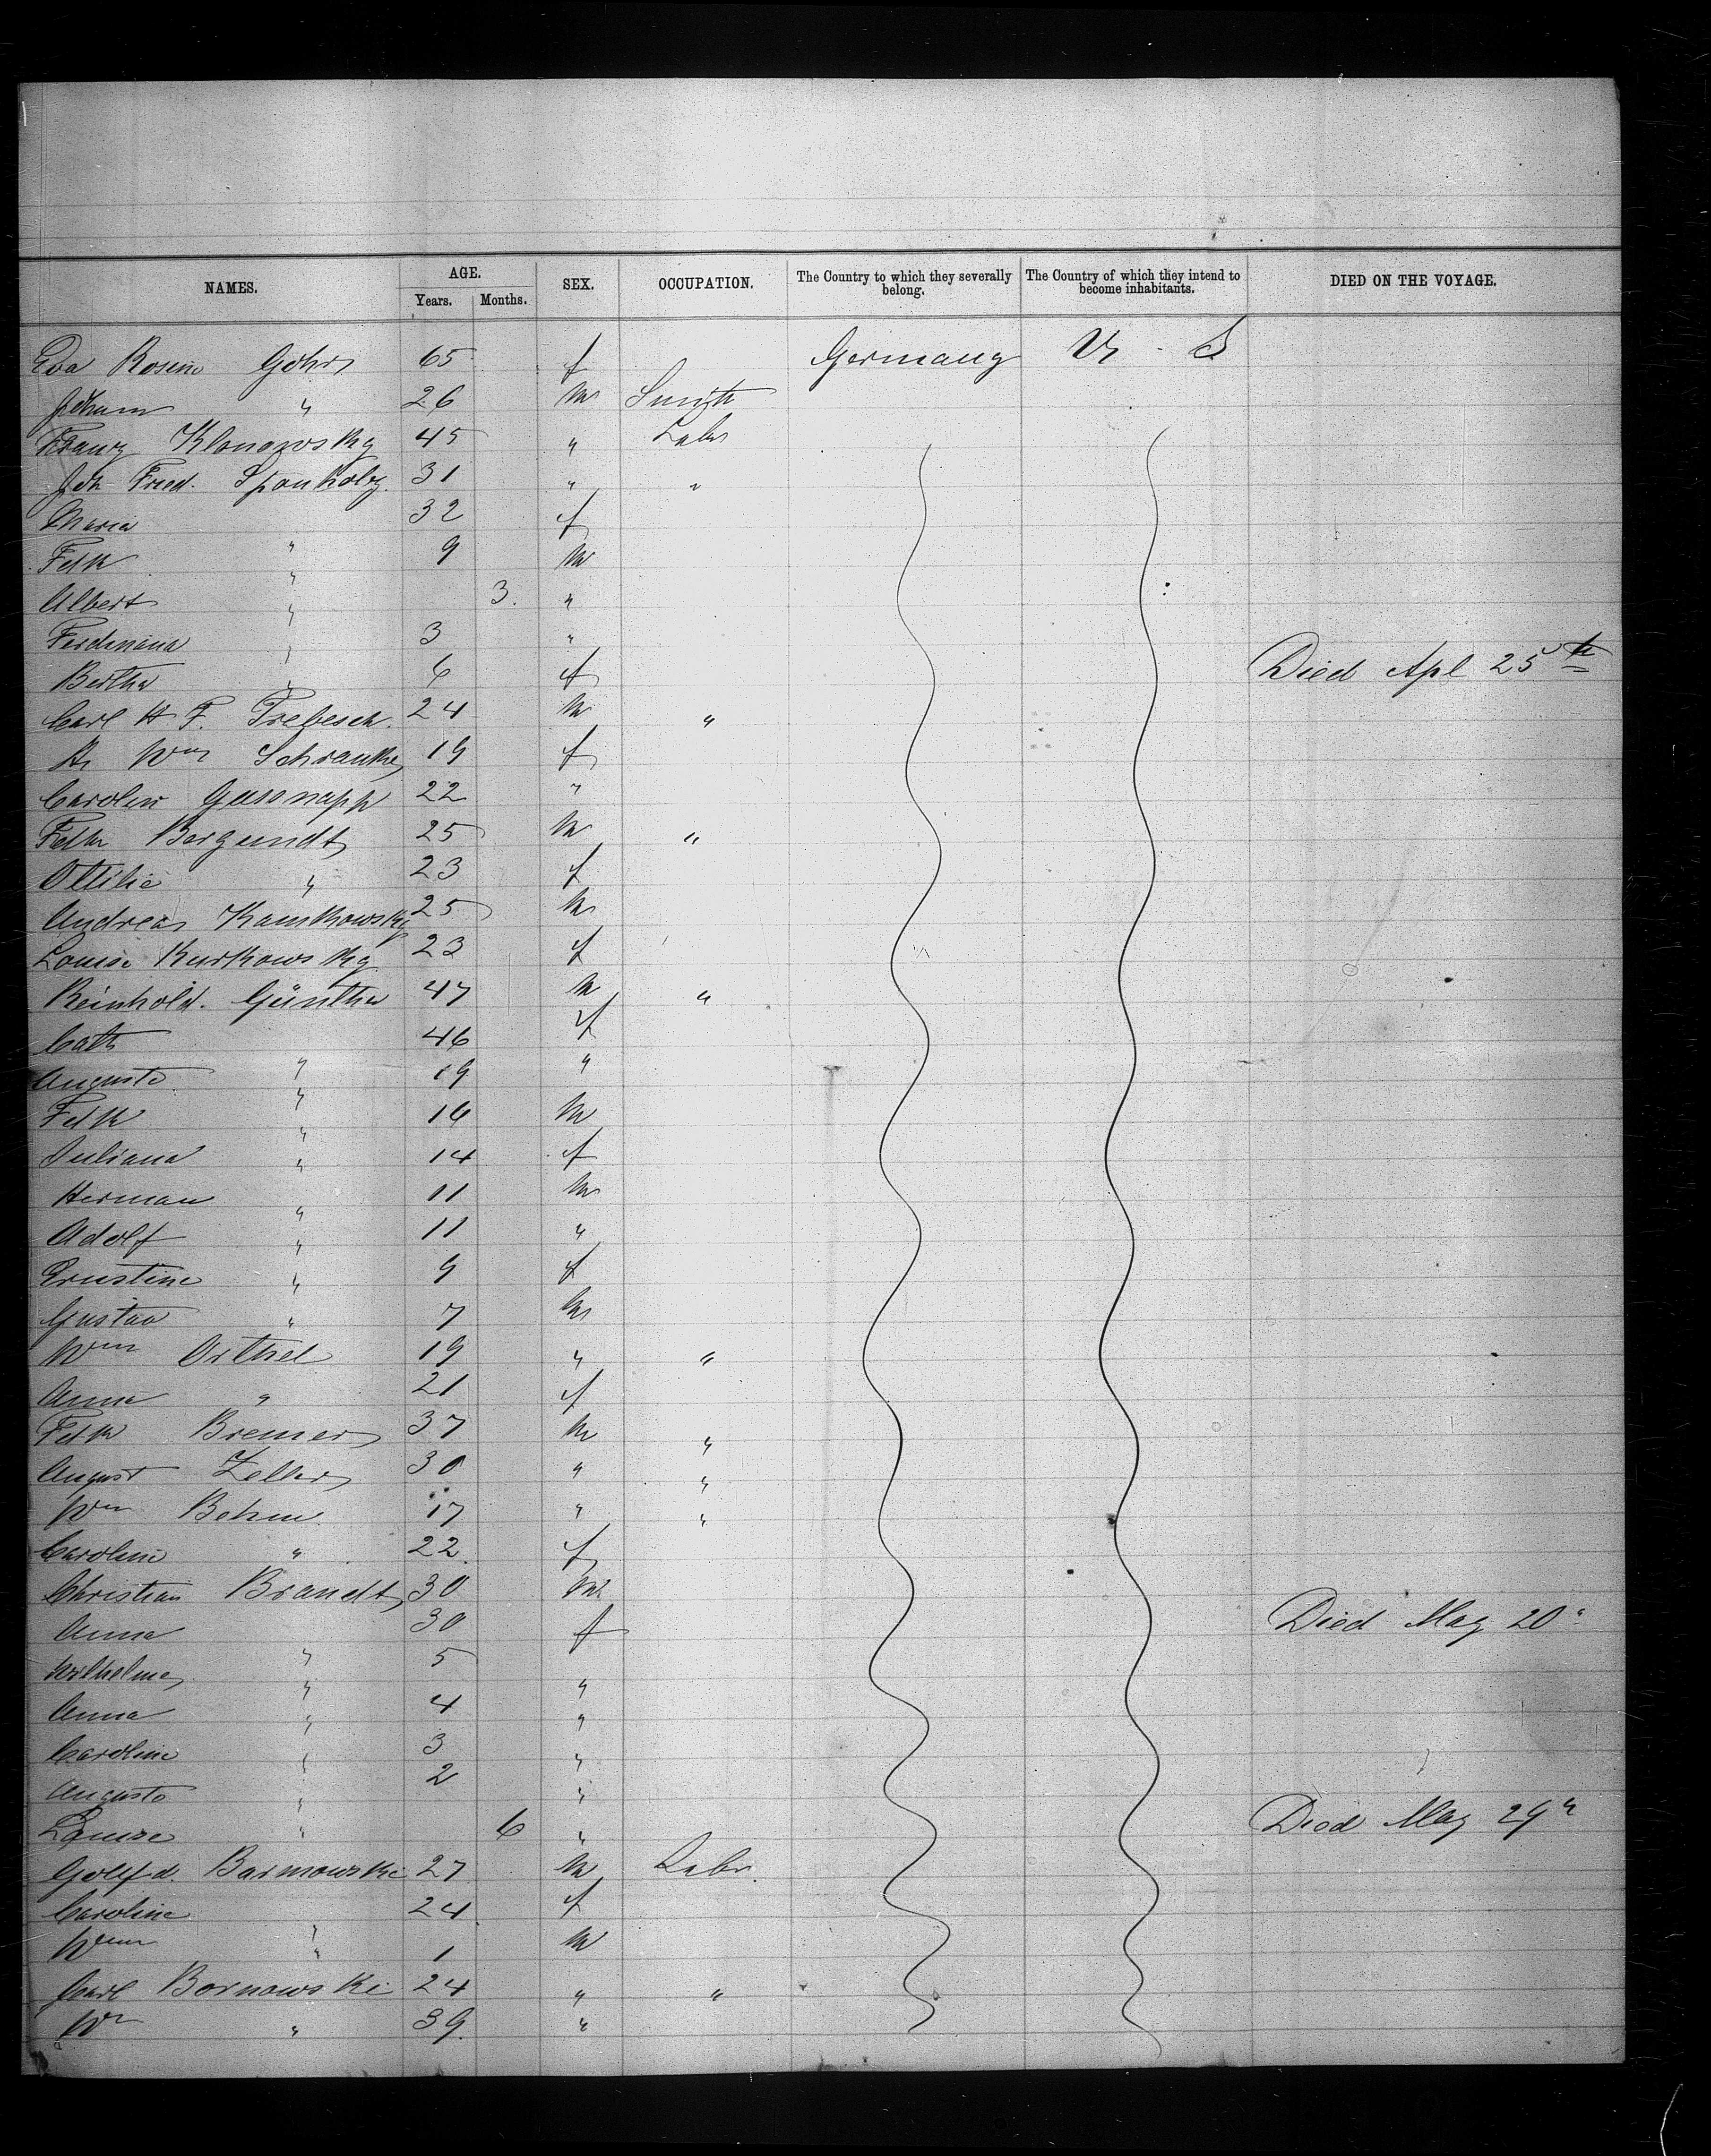 NAMES. AGE. Years. Months. SEX. OCCUPATION. The Country to which they severally belong. The Country of which they intend to become inhabitants. DIED ON THE VOYAGE.
Eva Rosine Göhr 65 f Germany U. S
Johann " 26 m Smith
Franz Klonowsky 45 " Labr
Joh Fried. Spanholz 31 " "
Maria " 32 f
Fdk " 9 m
Albert " 3. "
Ferdinand " 3 "
Bertha " 6 f Died Apl 25th
Carl H F. Trebesch. 24 m "
Wm Schranke 19 f
Carolin Gussnapp 22 "
Fdk Bergundt 25 m "
Ottilie " 23 f
Andreas Kamkowsky 25 m
Louise Kurkowsky 23 f
Reinhold. Günther 47 m "
Cath " 46 f
Auguste " 19 "
Fdk " 16 m
Juliana " 14 f
Herman " 11 m
Adolf " 11 "
Ernstine " 9 f
Gustav " 7 m
Wm Orthel 19 " "
Anna " 21 f
Fdk Bremer 37 m "
August Zelker 30 " "
Wm Bohm 17 " "
Caroline " 22 f
Christian Brandt 30 m
Anna " 30 f Died May 20"
Wilhelme " 5 "
Anna " 4 "
Caroline " 3 "
Auguste " 2 "
Louise " 6 " Died May 29"
Golfd. Barnowski 27 m Labr.
Caroline " 24 f
Wm " 1 m
Carl Bornowski 24 " "
Wm " 39. "